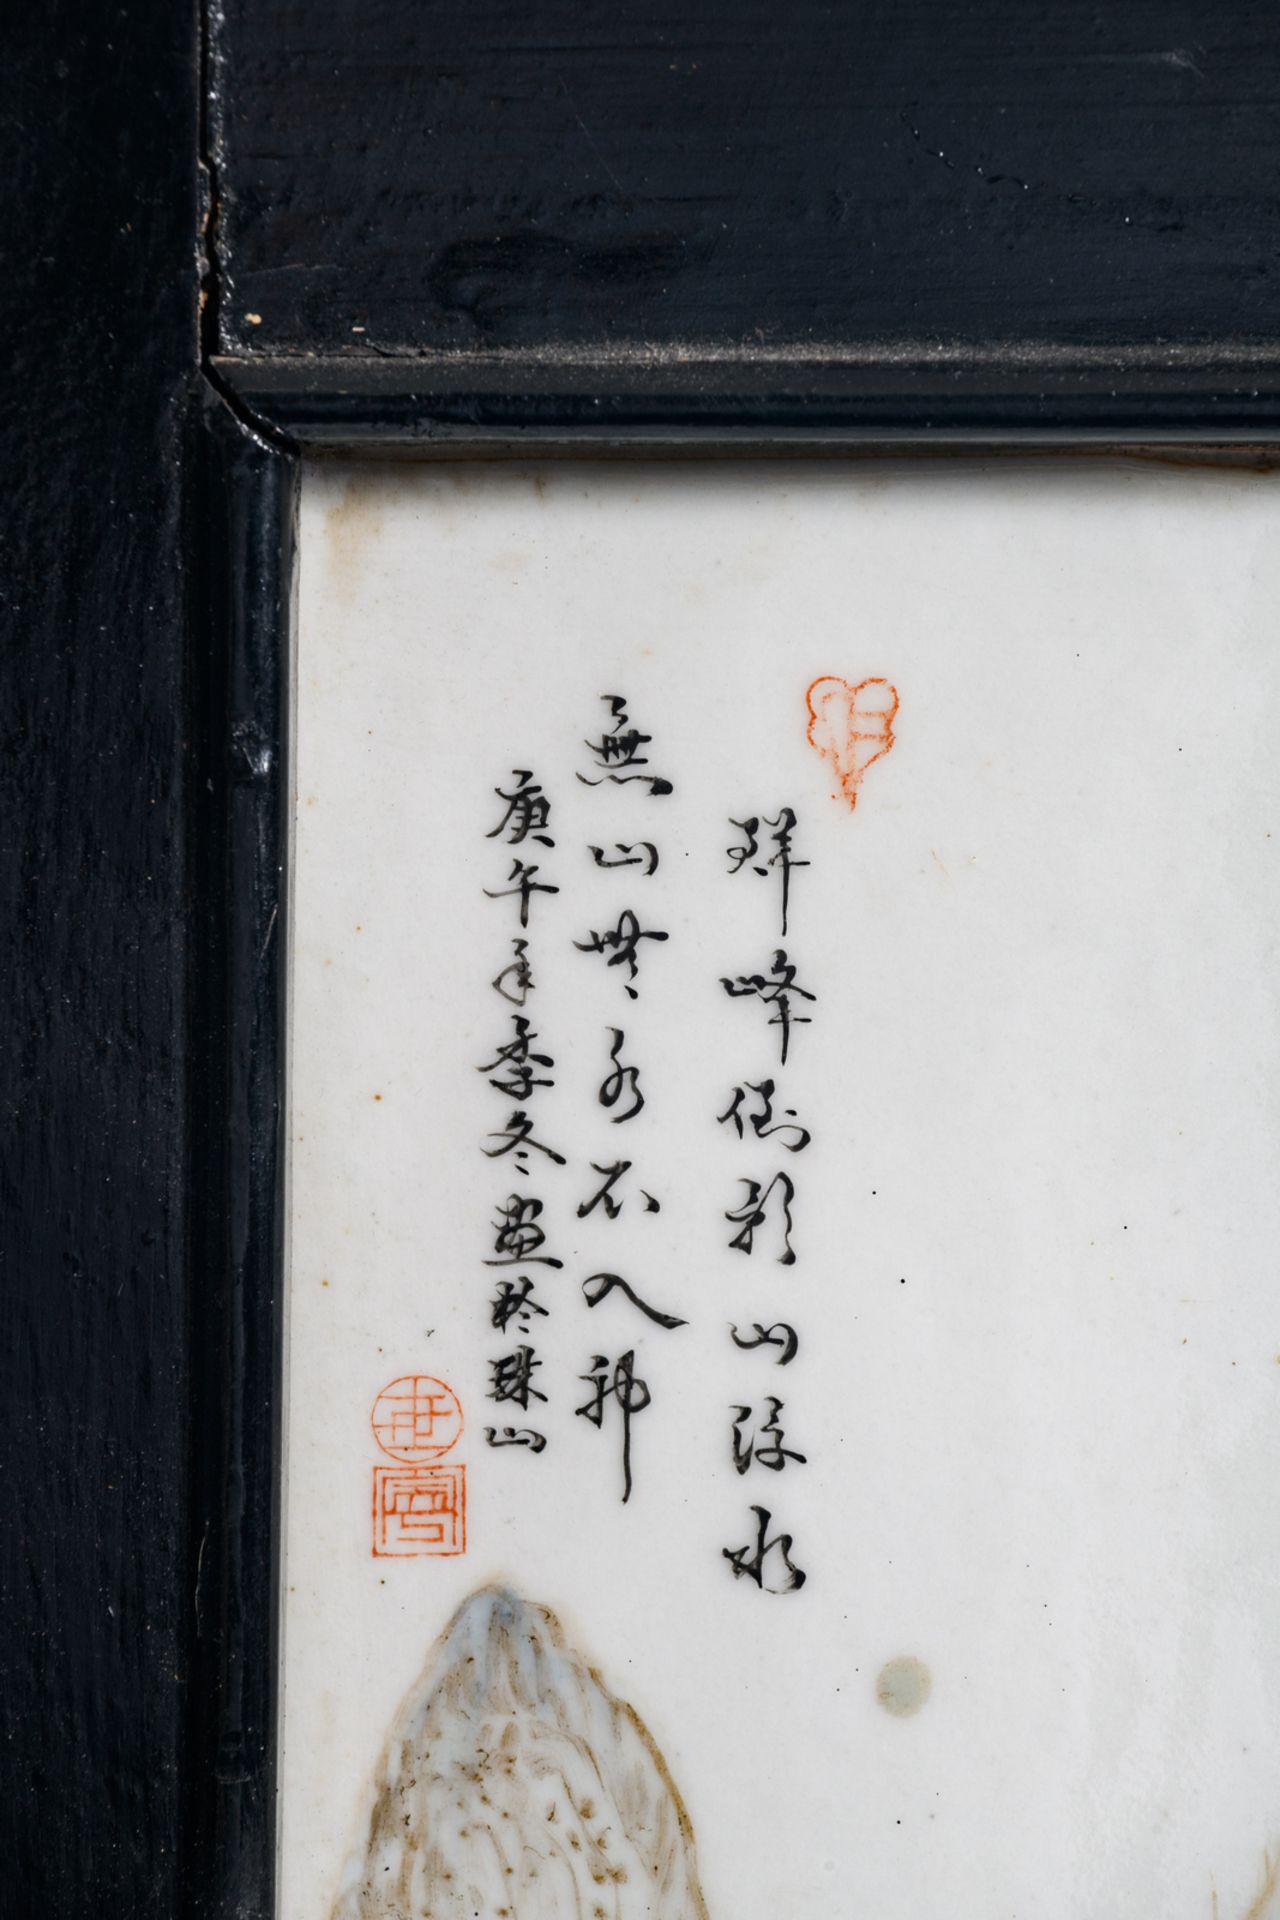 群峰倒影山浮水
無山無水不入神
庚午年季冬畫於珠山